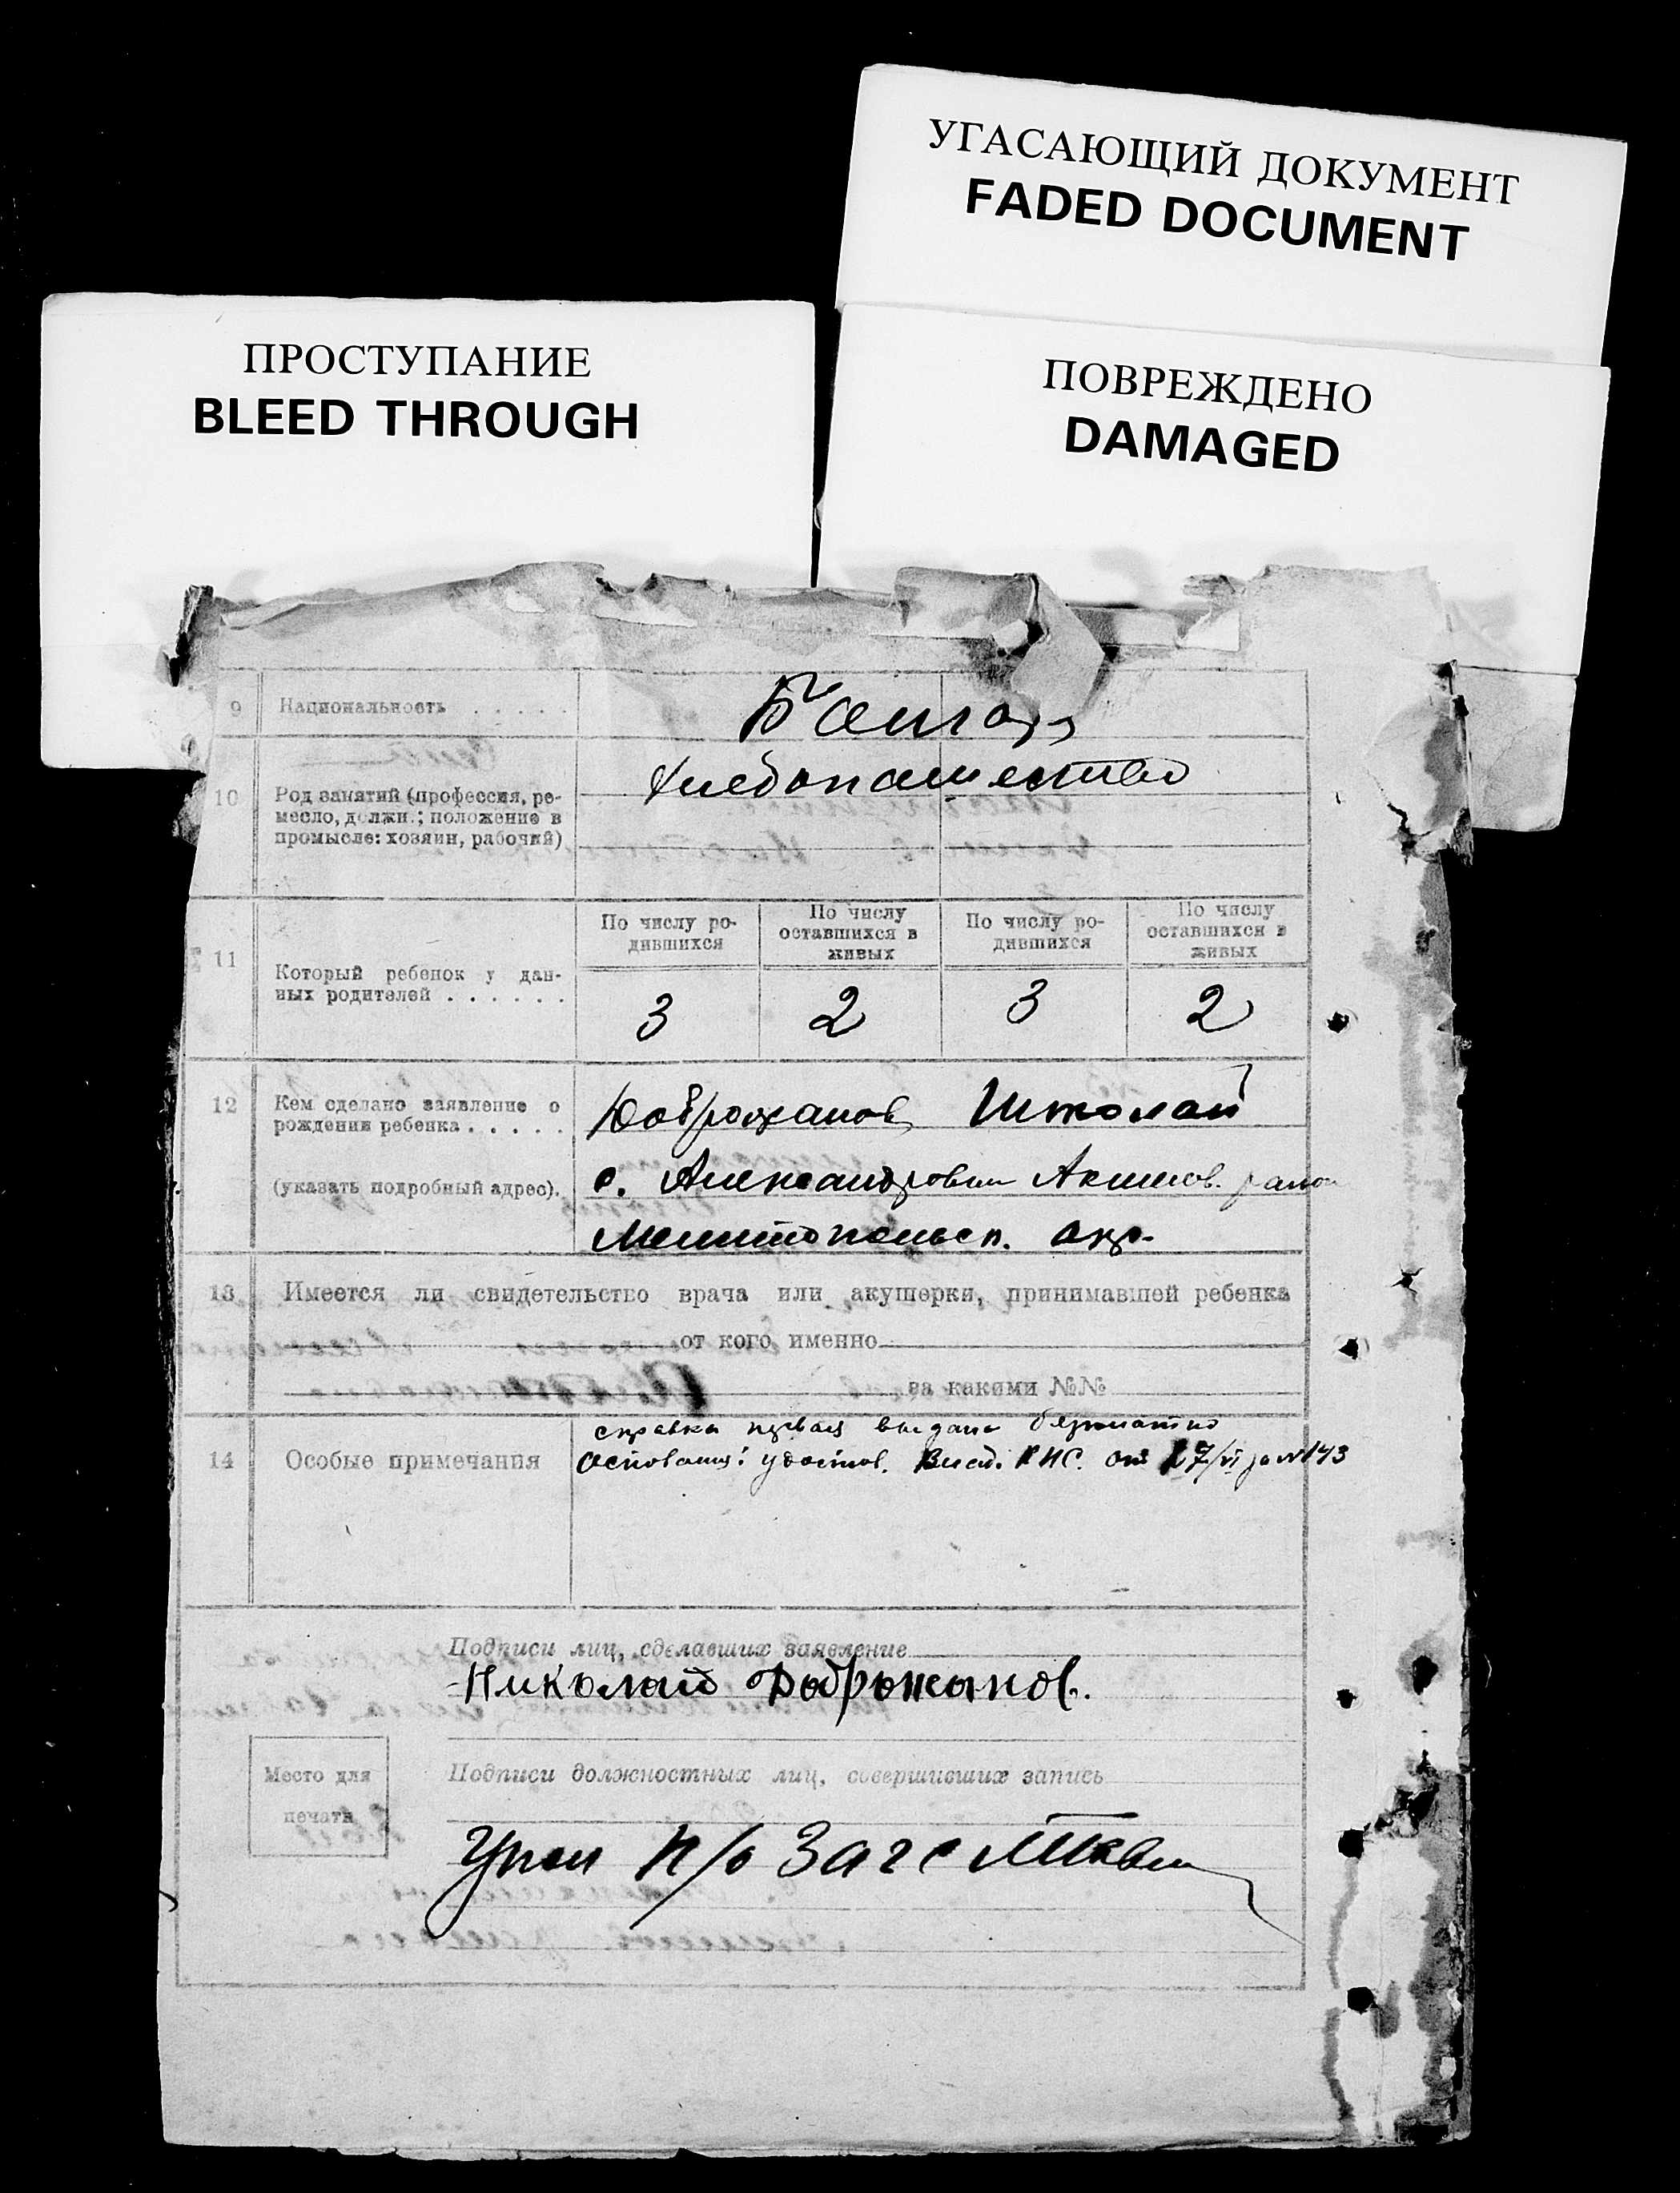 УГАСАЮЩИЙ ДОКУМЕНТ
FADED DOCUMENT
ПРОСТУПАНИЕ
BLEED THROUGH
ПОВРЕЖДЕНО
DAMAGED
9 Национальность . . . . .
10 Род занятий (профессия, ре-
месло, должн.; положение в
промысле: хозяин, рабочий)
хлебопашество
11 Который ребенок у дан-
ных родителей . . . . . .
По числу ро-
дившихся
По числу
оставшихся в
живых
По числу ро-
дившихся
По числу
оставшихся в
живых
3 2 3 2
12 Кем сделано заявление о
рождении ребенка . . . . .
(указать подробный адрес).
Доброжанов Николай
с. Александровки Акимов. район
Мелитопольск. окр.
13 Имеется ли свидетельство врача или акушерки, принимавшей ребенка
от кого именно
за какими №№
14 Особые примечания
справка первая выдана бесплатно
Основания: удостов. РИС. от 27/VI за № 143
Подписи лиц, сделавших заявление
Николай Доброжанов.
Место для
печати
Подписи должностных лиц, совершивших запись
п/о Загс